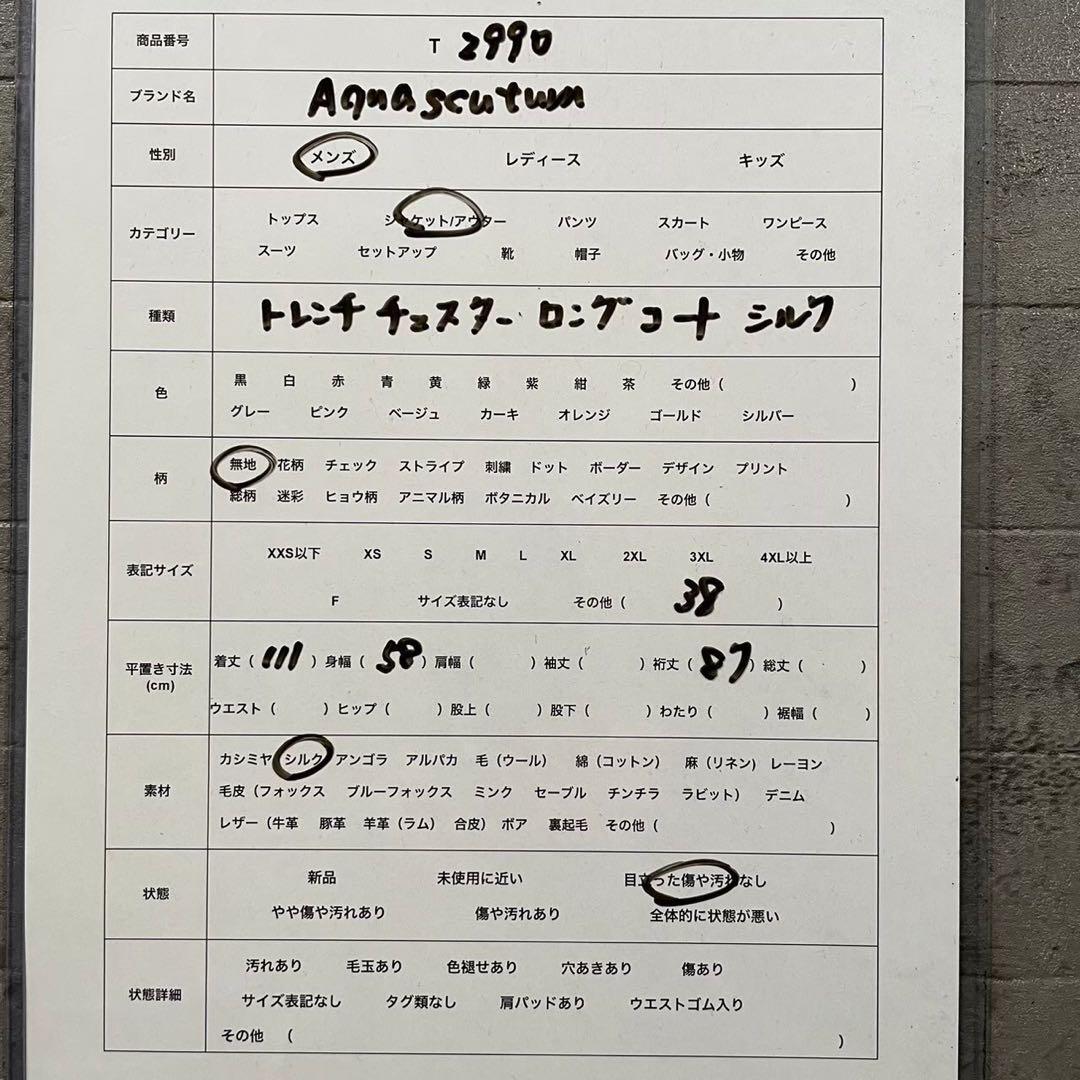 商品番号 T 2990
ブランド名 Aquascutum
性別 メンズ レディース キッズ
カテゴリー
トップス ジャケット/アウター パンツ スカート ワンピース
スーツ セットアップ 靴 帽子 バッグ・小物 その他
種類 トレンチ チェスター ロング コート シルク
色
黒 白 赤 青 黄 緑 紫 紺 茶 その他 ( )
グレー ピンク ベージュ カーキ オレンジ ゴールド シルバー
柄
無地 花柄 チェック ストライプ 刺繍 ドット ボーダー デザイン プリント
総柄 迷彩 ヒョウ柄 アニマル柄 ボタニカル ペイズリー その他 ( )
表記サイズ
XXS以下 XS S M L XL 2XL 3XL 4XL以上
F サイズ表記なし その他 ( 38 )
平置き寸法
(cm)
着丈 ( 111 ) 身幅 ( 58 ) 肩幅 ( ) 袖丈 ( ) 裄丈 ( 87 ) 総丈 ( )
ウエスト ( ) ヒップ ( ) 股上 ( ) 股下 ( ) わたり ( ) 裾幅 ( )
素材
カシミヤ シルク アンゴラ アルパカ 毛 (ウール) 綿 (コットン) 麻 (リネン) レーヨン
毛皮 (フォックス ブルーフォックス ミンク セーブル チンチラ ラビット) デニム
レザー (牛革 豚革 羊革 (ラム) 合皮) ボア 裏起毛 その他 ( )
状態
新品 未使用に近い 目立った傷や汚れなし
やや傷や汚れあり 傷や汚れあり 全体的に状態が悪い
状態詳細
汚れあり 毛玉あり 色褪せあり 穴あきあり 傷あり
サイズ表記なし タグ類なし 肩パッドあり ウエストゴム入り
その他 ( )